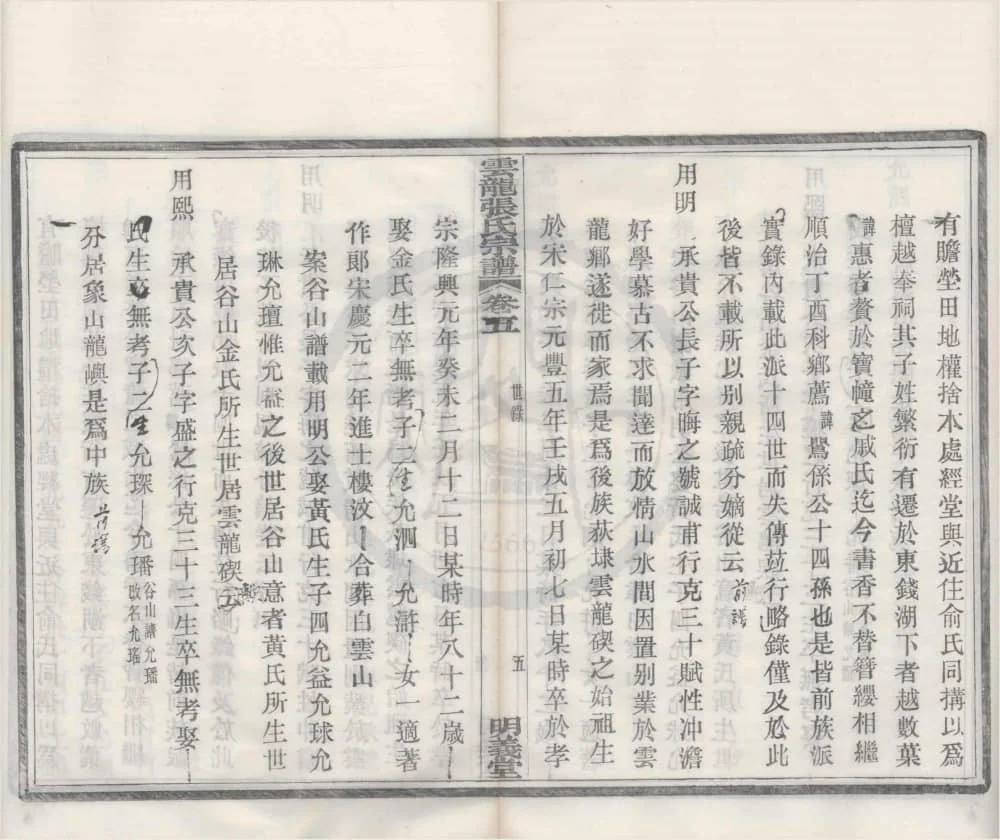 有贍塋田地權捨本處經堂與近住俞氏同搆以爲
檀越奉祠其子姓繁衍有遷於東錢湖下者越數葉
諱惠者贅於寶幢之戚氏迄今書香不替簪纓相繼
順治丁酉科鄉薦諱鷽係公十四孫也是皆前族派
實錄內載此派十四世而失傳茲行略錄僅及於此
後皆不載所以別親疏分嫡從云 前譜
用明 承貴公長子字晦之號誠甫行克三十賦性冲澹
好學慕古不求聞達而放情山水間因置别業於雲
龍鄉遂徙而家焉是爲後族荻埭雲龍碶之始祖生
於宋仁宗元豐五年壬戌五月初七日某時卒於孝
雲龍張氏宗譜 卷五 世錄 五 明義堂
宗隆興元年癸未二月十二日某時年八十二歲
娶金氏生卒無考子二生允泗 允滸 女一適著
作郎宋慶元二年進士樓汶 合葬白雲山
案谷山譜載用明公娶黃氏生子四允益允球允
琳允壇惟允益之後世居谷山意者黃氏所生世
居谷山金氏所生世居雲龍碶云 新
用熙 承貴公次子字盛之行克三十三生卒無考娶
氏生卒無考子二生允琛 允璠 谷山譜允璠改名允瑤
分居象山龍嶼是爲中族 前譜